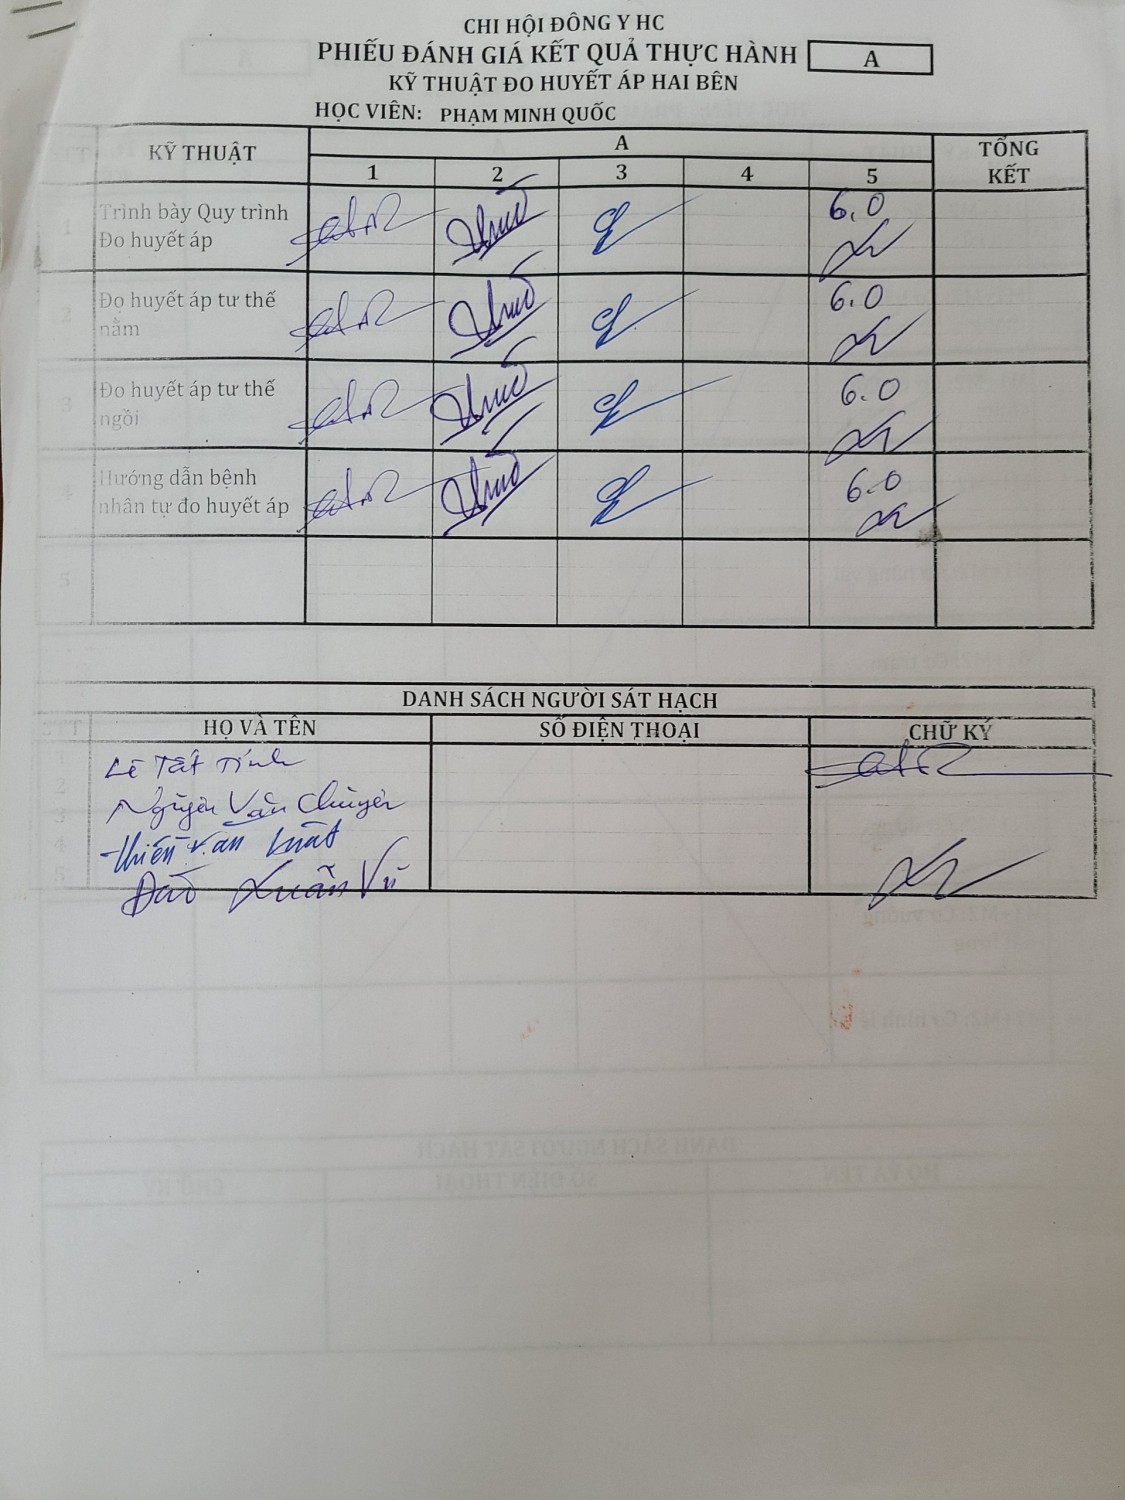 CHI HỘI ĐÔNG Y HC
PHIẾU ĐÁNH GIÁ KẾT QUẢ THỰC HÀNH A
KỸ THUẬT ĐO HUYẾT ÁP HAI BÊN
HỌC VIÊN: PHẠM MINH QUỐC
TT KỸ THUẬT A TỔNG KẾT
1 2 3 4 5
1 Trình bày Quy trình Đo huyết áp 6.0
2 Đo huyết áp tư thế nằm 6.0
3 Đo huyết áp tư thế ngồi 6.0
4 Hướng dẫn bệnh nhân tự đo huyết áp 6.0
5
DANH SÁCH NGƯỜI SÁT HẠCH
STT HỌ VÀ TÊN SỐ ĐIỆN THOẠI CHỮ KÝ
1 Lê Tất Tính
2 Nguyễn Văn Chuyên
3
4 Thiều Văn Luật
5 Đào Xuân Vũ